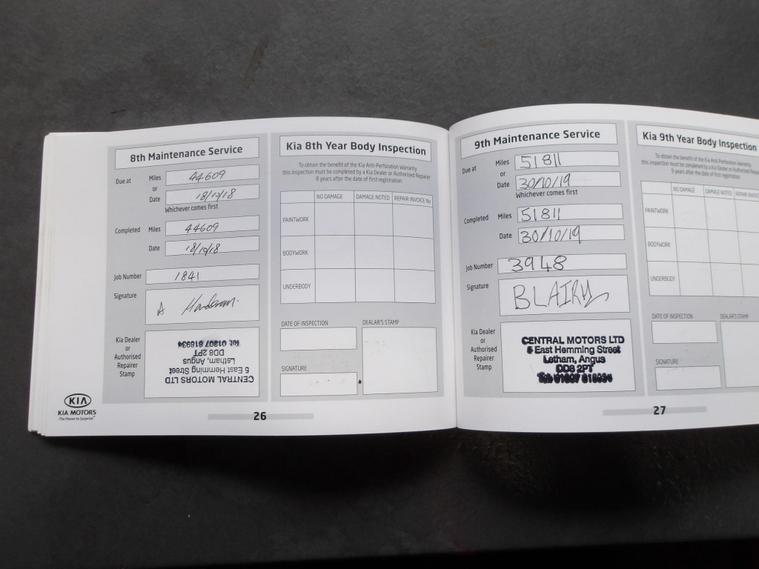 8th Maintenance Service
Due at Miles 44609
or
Date
Whichever comes first
Completed Miles 44609
Date
Job Number 1841
Signature A
Kia Dealer
or
Authorised
Repairer
Stamp
CENTRAL MOTORS LTD
5 East Hemming Street
Letham, Angus
DD8 2PT
Tel: 01307 818934
KIA
KIA MOTORS
The Power to Surprise
26
Kia 8th Year Body Inspection
To obtain the benefit of the Kia Anti-Perforation Warranty
this inspection must be completed by a Kia Dealer or Authorised Repairer
8 years after the date of first registration
NO DAMAGE DAMAGE NOTED REPAIR INVOICE No
PAINTWORK
BODYWORK
UNDERBODY
DATE OF INSPECTION DEALER'S STAMP
SIGNATURE
9th Maintenance Service
Due at Miles 51811
or
Date 30/10/19
Whichever comes first
Completed Miles 51811
Date 30/10/19
Job Number 3948
Signature
Kia Dealer
or
Authorised
Repairer
Stamp
CENTRAL MOTORS LTD
5 East Hemming Street
Letham, Angus
DD8 2PT
27
Kia 9th Year Body Inspection
To obtain the benefit of the Kia Anti-Perforation Warranty
this inspection must be completed by a Kia Dealer or Authorised Repairer
9 years after the date of first registration
NO DAMAGE DAMAGE NOTED REPAIR INVOICE
PAINTWORK
BODYWORK
UNDERBODY
DATE OF INSPECTION DEALER'S STAMP
SIGNATURE